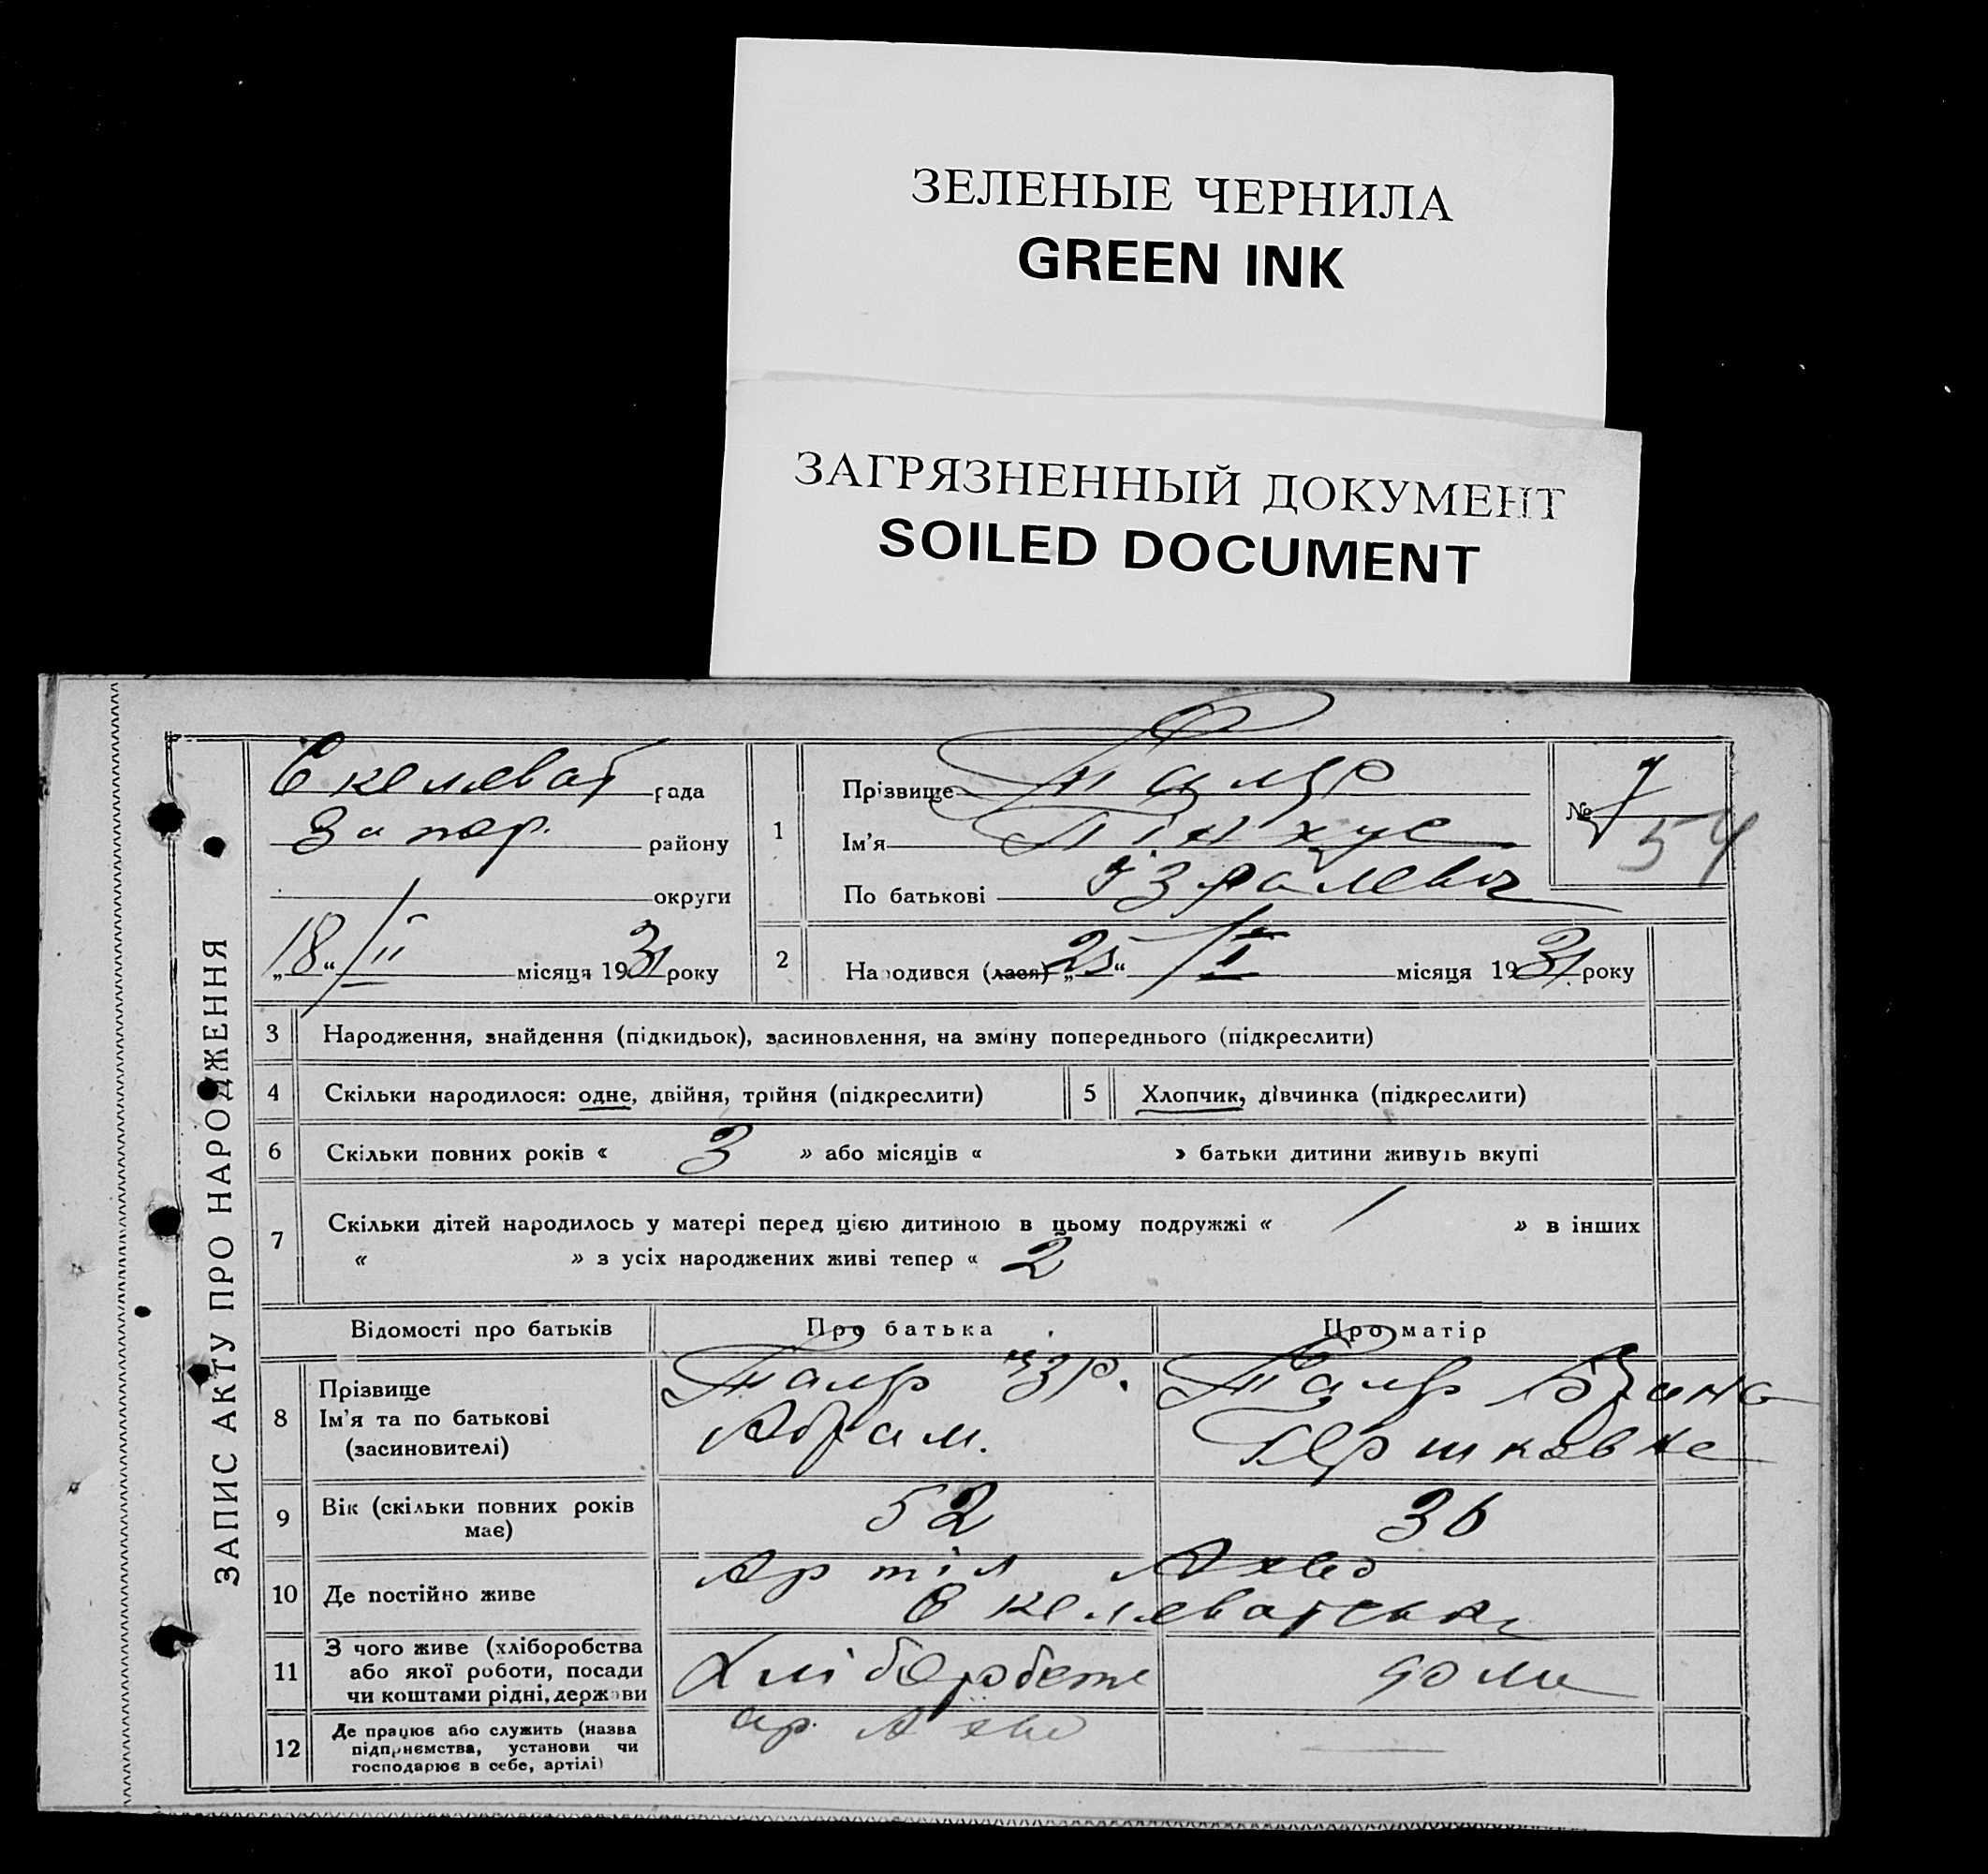 ЗЕЛЕНЫЕ ЧЕРНИЛА
GREEN INK
ЗАГРЯЗНЕННЫЙ ДОКУМЕНТ
SOILED DOCUMENT
ЗАПИС АКТУ ПРО НАРОДЖЕННЯ
Скелеват рада
Запор. району
округи
„18“ / II місяця 1931 року
1
Прізвище Талер
Ім'я Пінхус
По батькові Ізралевич
№ 7
54
2 Народився (лася) „25“ / I місяця 1931 року
3 Народження, знайдення (підкидьок), засиновлення, на зміну попереднього (підкреслити)
4 Скільки народилося: одне, двійня, трійня (підкреслити)
5 Хлопчик, дівчинка (підкреслити)
6 Скільки повних років « 3 » або місяців « » батьки дитини живуть вкупі
7 Скільки дітей народилось у матері перед цією дитиною в цьому подружжі « 1 » в інших
« » з усіх народжених живі тепер « 2
Відомості про батьків Про батька Про матір
8 Прізвище
Ім'я та по батькові
(засиновителі)
Талер Ізр.
Абрам.
Талер
Гершковна
9 Вік (скільки повних років
має)
52 36
10 Де постійно живе
Артіл Ахво
11 З чого живе (хліборобства
або якої роботи, посади
чи коштами рідні, держави
Хлібороб
12 Де працює або служить (назва
підприємства, установи чи
господарює в себе, артілі)
ар.